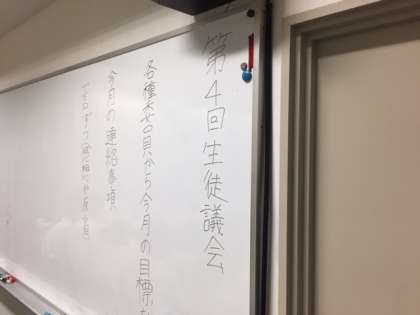 第4回生徒議会
各種委員から今月の目標を
今月の連絡事項
一言ずつ(感想や反省)